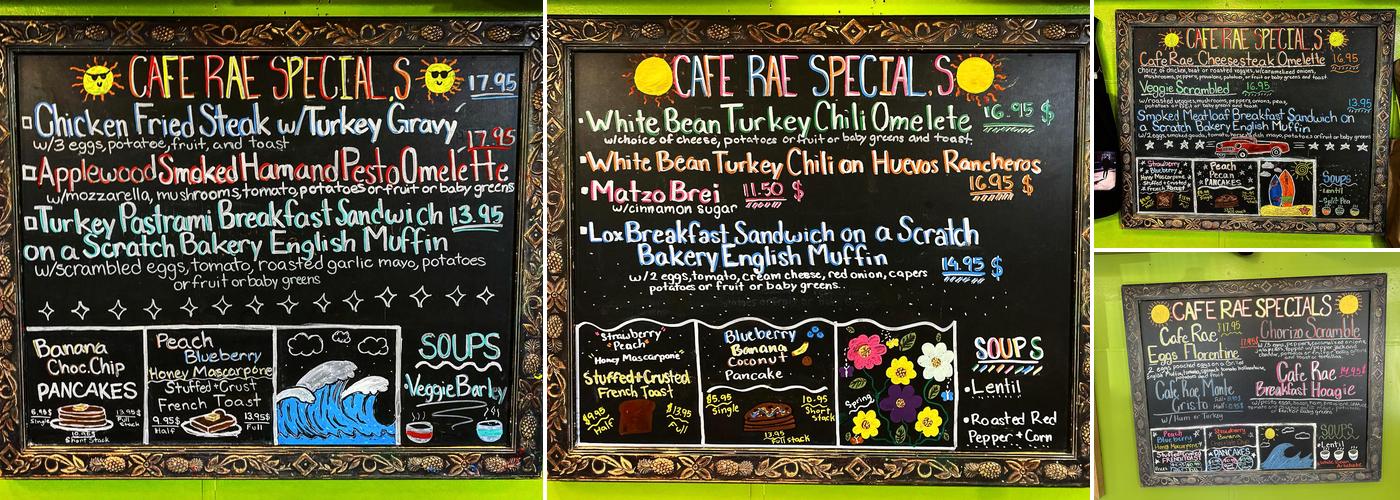 CAFE RAE SPECIAL.S
17.95
Chicken Fried Steak w/Turkey Gravy
w/3 eggs, potatoe, fruit, and toast
17.95
Applewood Smoked Ham and Pesto Omelette
w/mozzarella, mushrooms, tomato, potatoes or fruit or baby greens
Turkey Pastrami Breakfast Sandwich 13.95
on a Scratch Bakery English Muffin
w/scrambled eggs, tomato, roasted garlic mayo, potatoes
or fruit or baby greens
Banana
Choc.Chip
PANCAKES
6.95$
Single
13.95$
Full
10.95$
Short Stack
Peach
Blueberry
Honey Mascarpone
Stuffed + Crust
French Toast
9.95$
Half
13.95$
Full
SOUPS
Veggie Barley
CAFE RAE SPECIAL.S
White Bean Turkey Chili Omelete 16.95 $
w/choice of cheese, potatoes or fruit or baby greens and toast.
White Bean Turkey Chili on Huevos Rancheros
16.95 $
Matzo Brei 11.50 $
w/cinnamon sugar
Lox Breakfast Sandwich on a Scratch
Bakery English Muffin
14.95 $
w/2 eggs, tomato, cream cheese, red onion, capers
potatoes or fruit or baby greens.
Strawberry
Peach
Honey Mascarpone
Stuffed + Crusted
French Toast
$9.95
Half
$13.95
Full
Blueberry
Banana
Coconut
Pancake
$5.95
Single
10.95
Short
Stack
13.95
Full stack
Spring
SOUPS
Lentil
Roasted Red
Pepper + Corn
CAFE RAE SPECIAL.S
Cafe Rae Cheesesteak Omelette 16.95
Choice of chicken, beef or roasted veggies, w/caramelized onions,
mushrooms, peppers, provolone, potatoes, or fruit or baby greens and toast
Veggie Scrambled 16.95
w/roasted veggies, mushrooms, peppers, onions, peas,
potatoes or fruit or baby greens and toast
13.95
Smoked Meatloaf Breakfast Sandwich on
a Scratch Bakery English Muffin
Strawberry
Blueberry
Honey Mascarpone
Stuffed + Crusted
French Toast
Peach
Pecan
PANCAKES
SOUPS
Lentil
Split Pea
CAFE RAE SPECIALS
Cafe Rae $17.95
Eggs Florentine
Chorizo Scramble
17.95
Cafe Rae Monte
Cristo
w/Ham or Turkey
Cafe Rae 14.95$
Breakfast Hoagie
Peach
Blueberry
Honey Mascarpone
Stuffed + Crusted
FRENCH TOAST
Strawberry
Banana
PANCAKES
SOUPS
Lentil